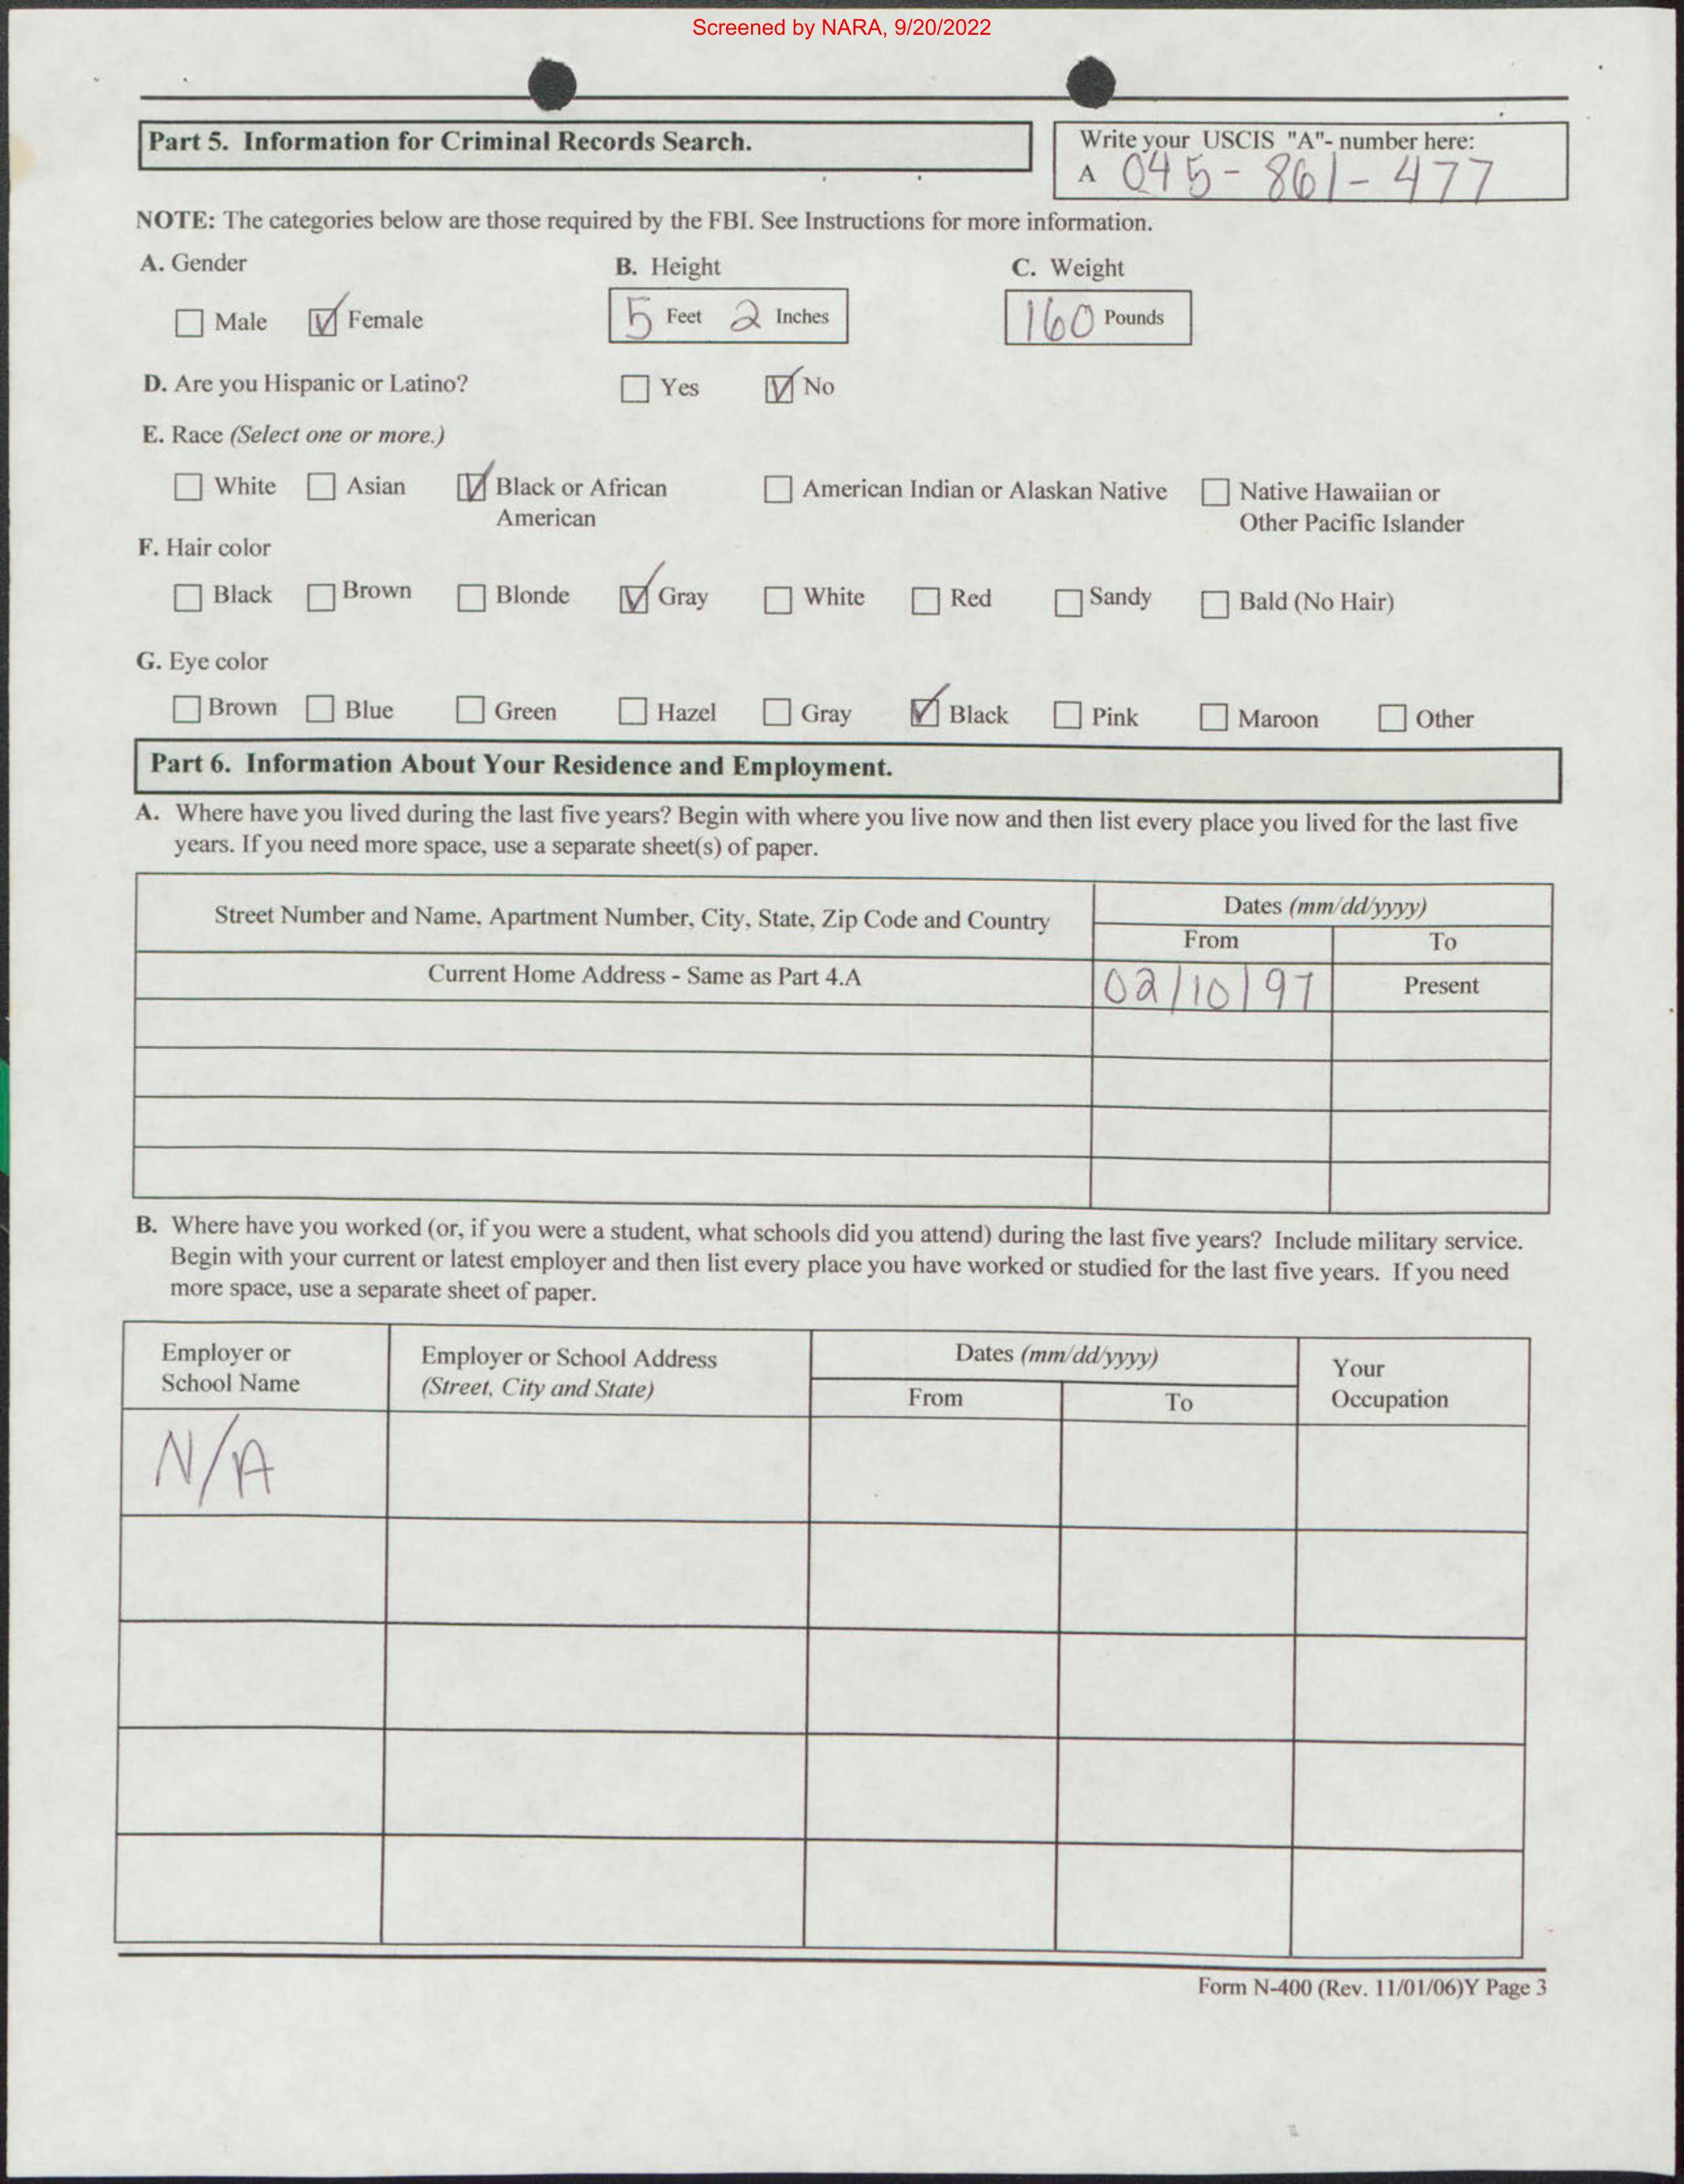 Screened by NARA, 9/20/2022
Part 5. Information for Criminal Records Search.
Write your USCIS "A"- number here:
A 045-861-477
NOTE: The categories below are those required by the FBI. See Instructions for more information.
A. Gender B. Height C. Weight
Male Female 5 Feet 2 Inches 160 Pounds
D. Are you Hispanic or Latino? Yes No
E. Race (Select one or more.)
White Asian Black or African American American Indian or Alaskan Native Native Hawaiian or Other Pacific Islander
F. Hair color
Black Brown Blonde Gray White Red Sandy Bald (No Hair)
G. Eye color
Brown Blue Green Hazel Gray Black Pink Maroon Other
Part 6. Information About Your Residence and Employment.
A. Where have you lived during the last five years? Begin with where you live now and then list every place you lived for the last five
years. If you need more space, use a separate sheet(s) of paper.
Street Number and Name, Apartment Number, City, State, Zip Code and Country
Dates (mm/dd/yyyy)
From To
Current Home Address - Same as Part 4.A 02/10/97 Present
B. Where have you worked (or, if you were a student, what schools did you attend) during the last five years? Include military service.
Begin with your current or latest employer and then list every place you have worked or studied for the last five years. If you need
more space, use a separate sheet of paper.
Employer or
School Name
Employer or School Address
(Street, City and State)
Dates (mm/dd/yyyy)
From To
Your
Occupation
N/A
Form N-400 (Rev. 11/01/06)Y Page 3